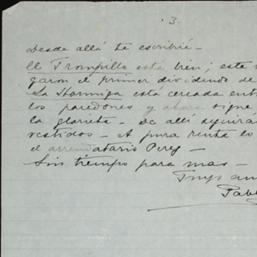 3.
Desde allá te escribiré.-
El Trompillo está bien; este
garon el primer dividendo de
La Hormiga está cercada ent
los paredones y ahora sigue
la glorieta.- De allí seguirá
vestidos.- A pura renta lo
el arrendatario Perez.-
Sin tiempo para mas.-
Pabl